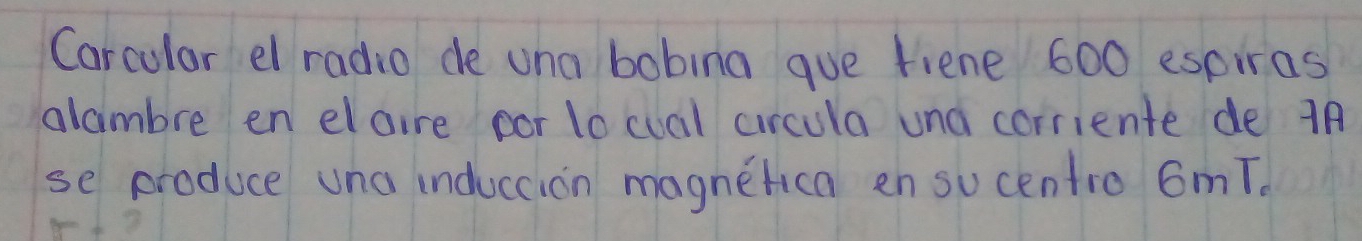 Carcular el radio de una bobina que tiene 600 espiras
alambre en el aire por lo cual circula una corriente de 7A
se produce una inducción magnética en su centro 6mT.
r = ?